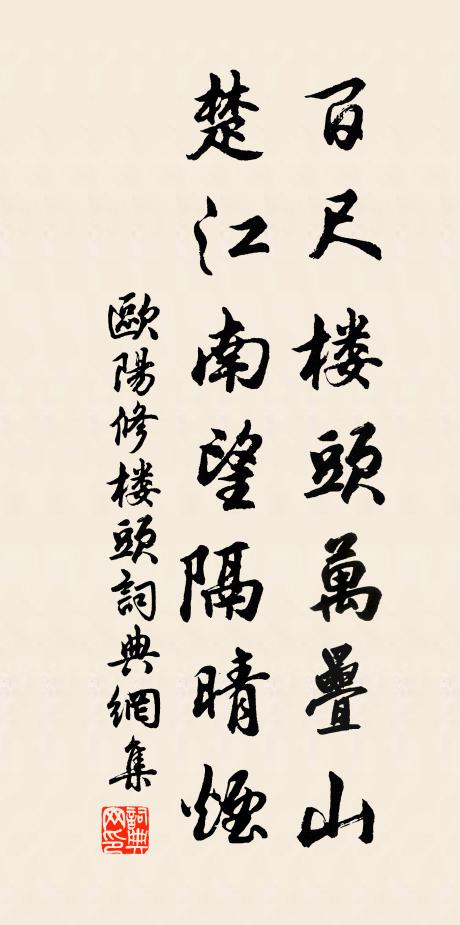 百尺楼頭萬疊山
楚江南望隔晴煙
歐陽修楼頭詞典網集
詞典网印